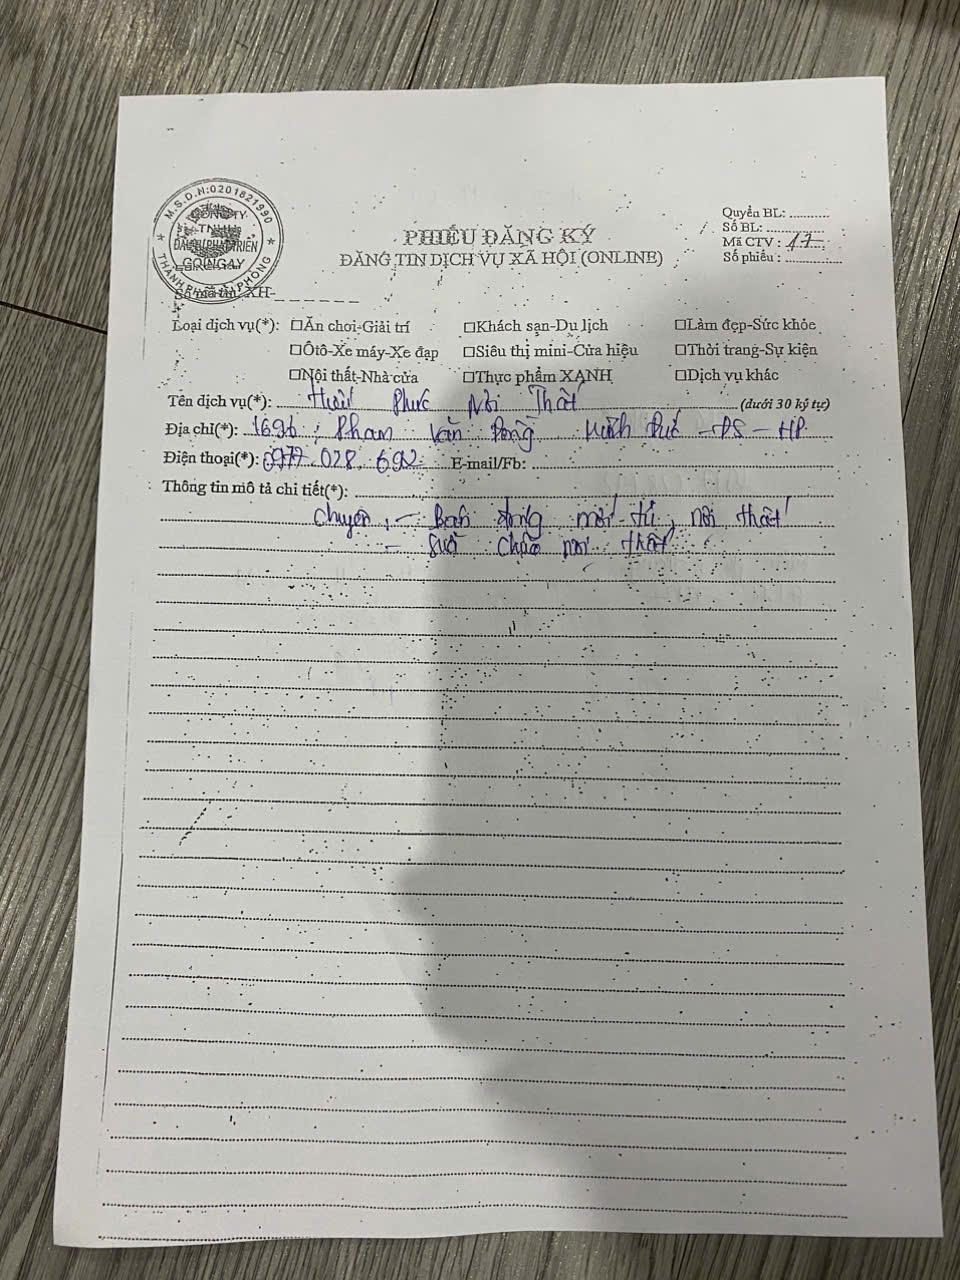 M.S.D.N:0201821990
CÔNG TY
TNHH
ĐẦU TƯ PHÁT TRIỂN
GOINGAY
THÀNH PHỐ HẢI PHÒNG
Quyển BL: ...........
Số BL: ..............
Mã CTV : 17
Số phiếu : ..............
PHIẾU ĐĂNG KÝ
ĐĂNG TIN DỊCH VỤ XÃ HỘI (ONLINE)
Số mã tin: XH-_ _ _ _ _ _
Loại dịch vụ(*): □Ăn chơi-Giải trí □Khách sạn-Du lịch □Làm đẹp-Sức khỏe
□Ôtô-Xe máy-Xe đạp □Siêu thị mini-Cửa hiệu □Thời trang-Sự kiện
□Nội thất-Nhà cửa □Thực phẩm XANH □Dịch vụ khác
Tên dịch vụ(*): Phúc Nội Thất (dưới 30 ký tự)
Địa chỉ(*): 1696, Phạm Văn Đồng Minh Đức - ĐS - HP
Điện thoại(*): 0977 028 692 E-mail/Fb:
Thông tin mô tả chi tiết(*):
Chuyên, - Bán đóng mới tủ, nội thất
- Sửa chữa nội thất